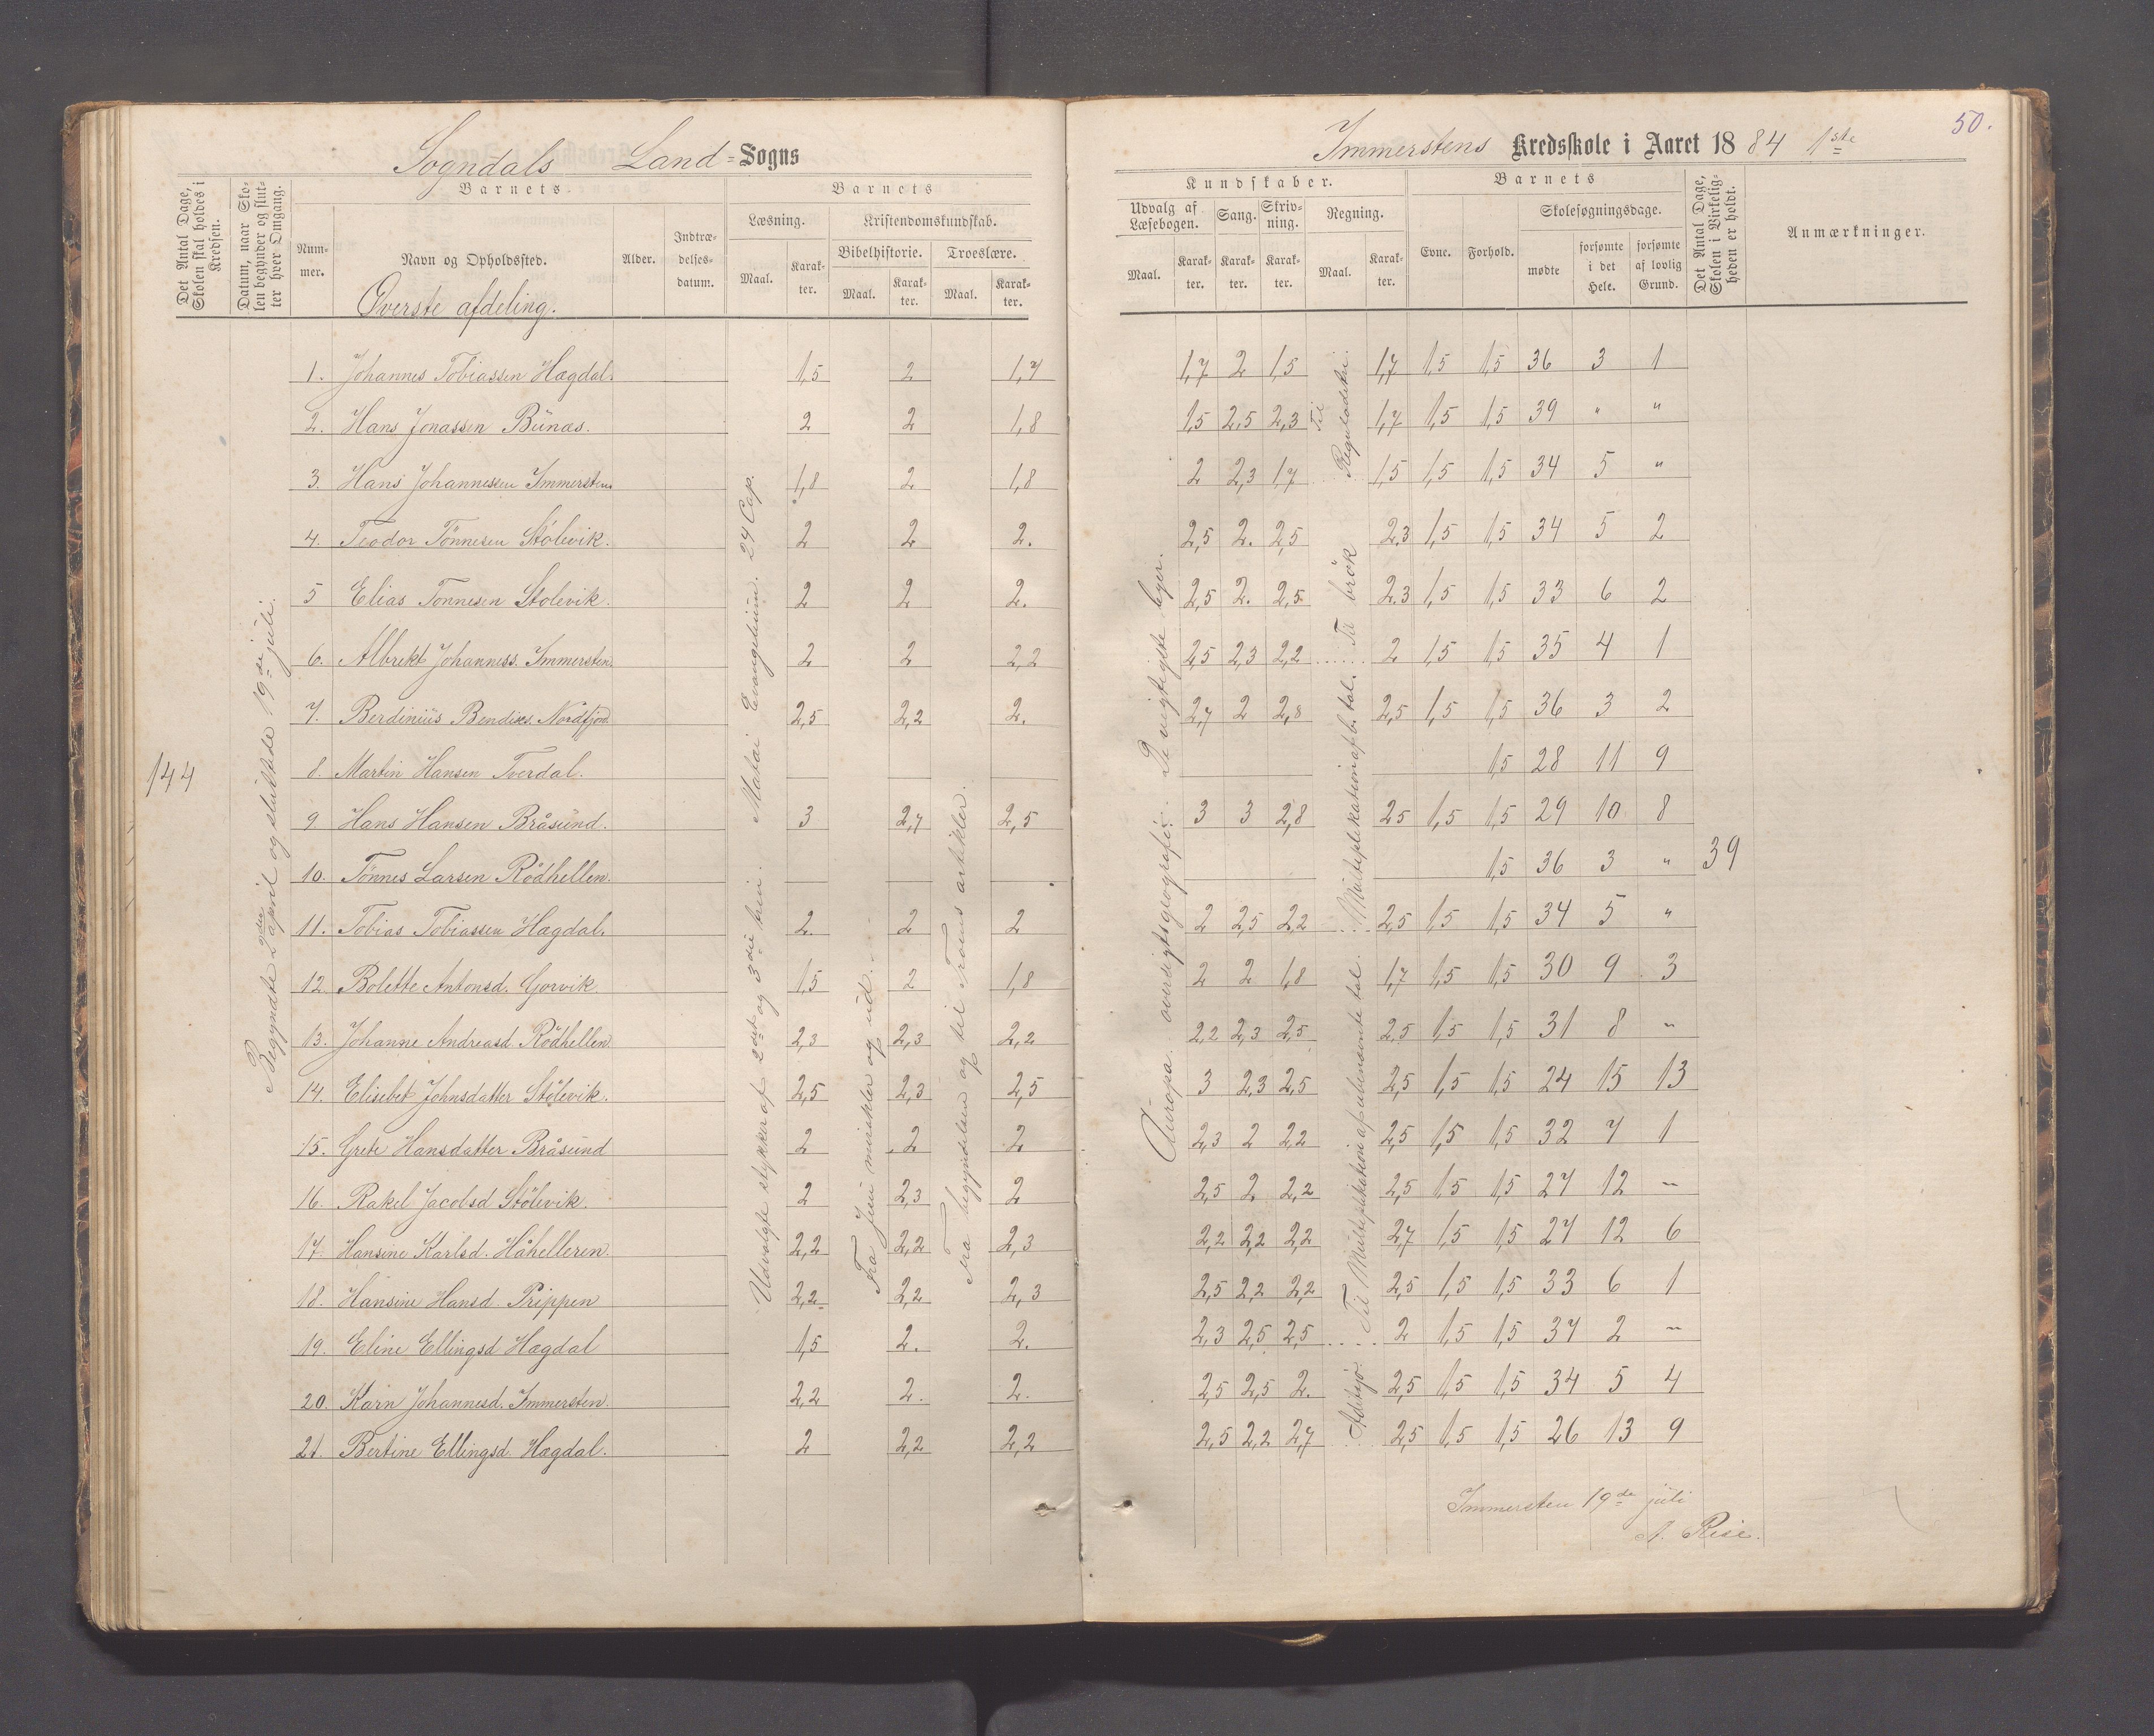 50.
Sogndals Land-Sogns
Immerstens Kredsskole i Aaret 1884 1ste
Det Antal Dage, Skolen skal holdes i Kredsen.
Datum, naar Skolen begynder og slutter hver Omgang.
Barnets
Nummer.
Navn og Opholdssted.
Alder.
Indtrædelsesdatum.
Barnets
Læsning.
Kristendomskundskab.
Bibelhistorie.
Troeslære.
Maal.
Karakter.
Maal.
Karakter.
Maal.
Karakter.
Kundskaber.
Udvalg af Læsebogen.
Sang.
Skrivning.
Regning.
Maal.
Karakter.
Karakter.
Karakter.
Maal.
Karakter.
Barnets
Evne.
Forhold.
Skolesøgningsdage.
mødte
forsømte i det Hele.
forsømte af lovlig Grund.
Det Antal Dage, Skolen i Virkeligheden er holdt.
Anmærkninger.
Øverste afdeling.
1. Johannes Tobiassen Hægdal. 1,5 2 1,7 1,7 2 1,5 1,7 1,5 1,5 36 3 1
2. Hans Jonassen Bünæs. 2 2 1,8 1,5 2,5 2,3 1,7 1,5 1,5 39 " "
3. Hans Johannesen Immersten 1,8 2 1,8 2 2,3 1,7 1,5 1,5 1,5 34 5 "
4. Teodor Tönnesen Stölevik. 2 2 2. 2,5 2. 2,5 2.3 1,5 1,5 34 5 2
5 Elias Tönnesen Stölevik. 2 2 2. 2,5 2. 2,5 2.3 1,5 1,5 33 6 2
6. Albrekt Johanness. Immersten 2 2 2,2 2,5 2,3 2,2 2 1,5 1,5 35 4 1
7. Berdiniüs Bendiks. Nordfjord 2,5 2,2 2. 2,7 2 2,8 2,5 1,5 1,5 36 3 2
8. Martin Hansen Tverdal. 1,5 28 11 9
9 Hans Hansen Bråsünd. 3 2,7 2,5 3 3 2,8 2,5 1,5 1,5 29 10 8
10. Tönnes Larsen Rödhellen. 1,5 36 3 "
11. Tobias Tobiassen Hægdal. 2 2 2 2 2,5 2,2 2,5 1,5 1,5 34 5 "
12. Bolette Antonsd. Gorvik 1,5 2 1,8 2 2 1,8 1,7 1,5 1,5 30 9 3
13. Johanne Andreasd Rödhellen 2,3 2,3 2,2 2,2 2,3 2,5 2,5 1,5 1,5 31 8 "
14. Elisebet Johnsdatter Stölevik. 2,5 2,3 2,5 3 2,3 2,5 2,5 1,5 1,5 24 15 13
15. Grete Hansdatter Bråsünd 2 2 2 2,3 2 2,2 2,5 1,5 1,5 32 7 1
16. Rakel Jacobsd Stölevik. 2 2,3 2 2,5 2 2,2 2,5 1,5 1,5 27 12 "
17. Hansine Karlsd. Håhelleren 2,2 2,2 2,3 2,2 2,2 2,2 2,7 1,5 1,5 27 12 6
18. Hansine Hansd. Prippen 2,2 2,2 2,3 2,5 2,2 2,2 2,5 1,5 1,5 33 6 1
19. Eline Ellingsd Hægdal 1,5 2. 2. 2,3 2,5 2,5 2 1,5 1,5 37 2 "
20. Karn Johannesd. Immersten. 2,2 2. 2. 2,5 2,5 2. 2,5 1,5 1,5 34 5 4
21. Bertine Ellingsd. Hægdal. 2 2,2 2,2 2,5 2,2 2,7 2,5 1,5 1,5 26 13 9
144
Begyndte 2den april og sluttede 19de juli.
Udvalgte stykker af 2det og 3die trin. Matæi Evangeliüm. 24 Cap.
Fra Jesu mirakler og ud.
Fra begyndelsen og til Troens artikler.
Aüropa. oversigtsgeografi. De vigtigste byer.
Til Regüladetri.
Til brök
Multiplikation af b. tal.
Til Multiplikation af ubenævnte tal.
39
Immersten 19de jüli
A. Rise.